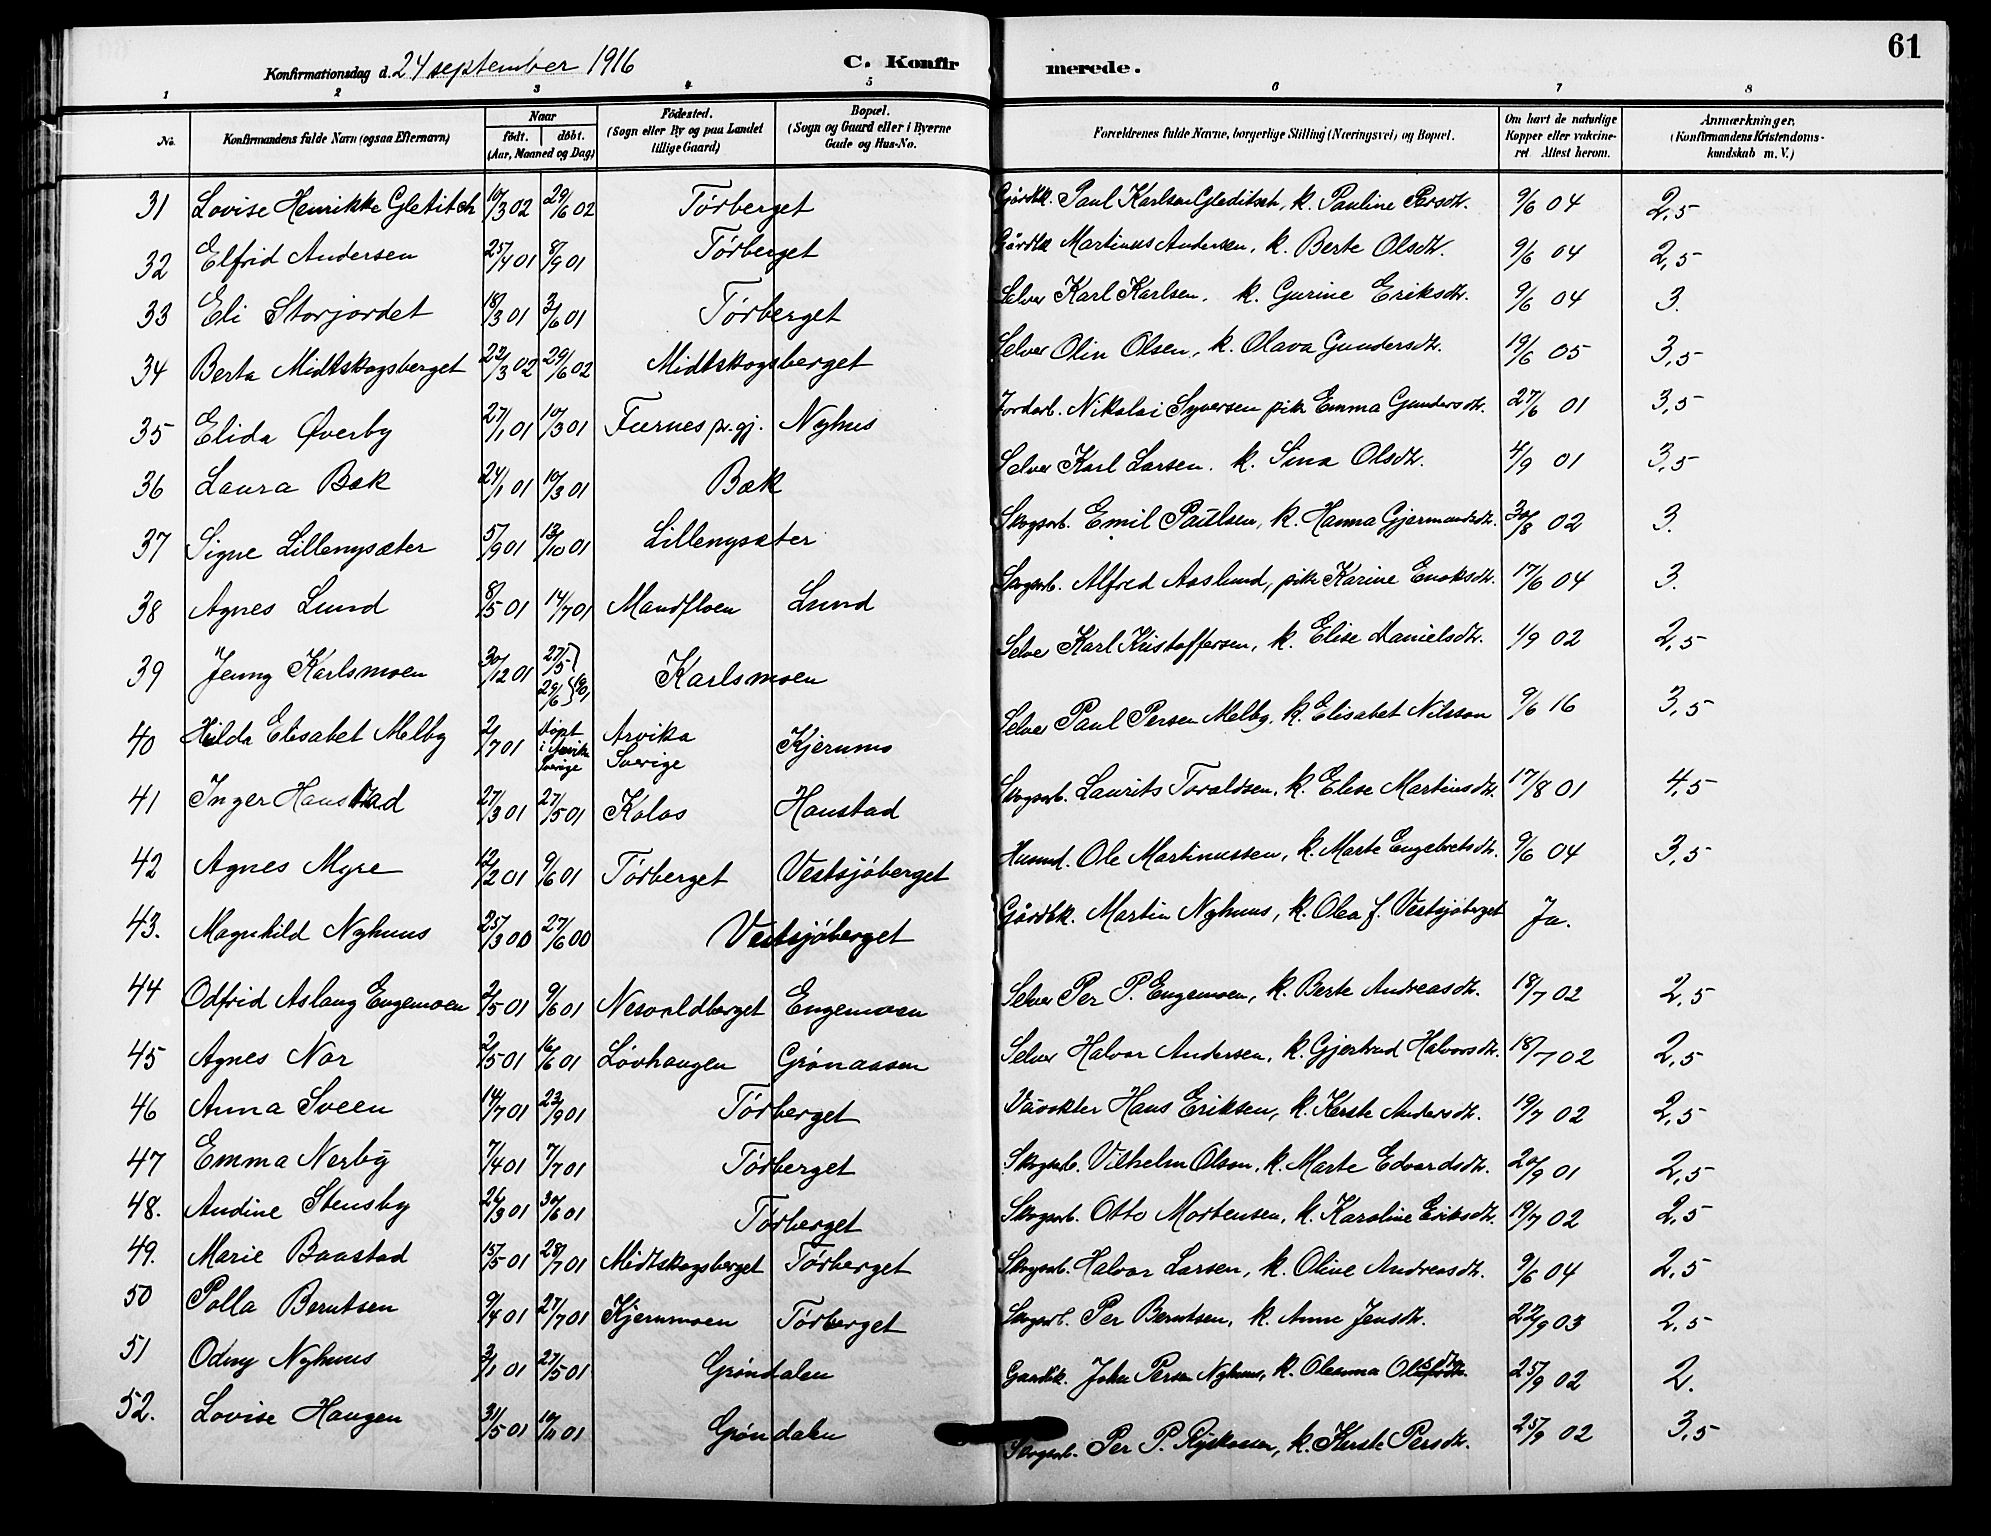 61
Konfirmationsdag d. 24 september 1916 C. Konfirmerede.
1 2 3 4 5 6 7 8
No. Konfirmandens fulde Navn (ogsaa Efternavn) Naar født. døbt. (Aar, Maaned og Dag) Födested. (Sogn eller By og paa Landet tillige Gaard) Bopæl. (Sogn og Gaard eller i Byerne Gade og Hus-No. Forældrenes fulde Navne, borgerlige Stilling (Næringsvei) og Bopæl. Om havt de naturlige Kopper eller vakcineret Attest herom. Anmærkninger, (Konfirmandens Kristendomskundskab m. V.)
31 Lovise Henrikke Gletitch 10/3 02 29/6 02 Tørberget Gårdbk. Paul Karlsen Gleditsch, k. Pauline Persdtr. 9/6 04 2,5
32 Elfrid Andersen 25/4 01 8/9 01 Tørberget Gårdbk Martinus Andersen, k. Berte Olsdtr. 9/6 04 2,5
33 Eli Storjordet 18/3 01 3/6 01 Tørberget Selver Karl Karlsen, k. Gurine Eriksdtr. 9/6 04 3.
34 Berta Midtskogsberget 22/3 02 29/6 02 Midtskogsberget Selver Olin Olsen, k. Olava Gundersdtr. 19/6 05 3,5
35 Elida Øverby 27/1 01 10/3 01 Furnes pr.gj. Nyhus Jordarb. Nikolai Syversen pike Emma Gundersdtr. 27/6 01 3,5
36 Laura Bæk 24/1 01 10/3 01 Bæk Selver Karl Larsen. k. Sina Olsdtr. 4/9 01 3,5
37 Signe Lillenysæter 5/9 01 13/10 01 Lillenysæter Skogsarb. Emil Paulsen, k. Hanna Gjermundsdtr. 30/8 02 3.
38 Agnes Lund 8/5 01 14/7 01 Mandfloen Lund Skogsarb. Alfred Aaslund, pike Karine Enoksdtr. 17/6 04 3.
39 Jenny Karlsmoen 30/12 01 27/5 29/6 1901 Karlsmoen Selver Karl Kristoffersen, k. Elise Danielsdtr. 1/9 02 2,5
40 Hilda Elisabet Melby 2/7 01 døpt i Arvika Sverige Arvika Sverige Kjernmo Selver Paul Persen Melby, k. Elisabet Nilsson 9/6 16 3,5
41 Inger Hanstad 27/3 01 27/5 01 Kolos Hanstad Skogsarb. Laurits Toraldsen, k. Elise Martinsdtr. 17/8 01 4,5
42 Agnes Myre 12/2 01 9/6 01 Tørberget Vestsjøberget Husmd. Ole Martinussen, k. Marte Engebretsdtr. 9/6 04 3,5
43. Magnhild Nyhuus 25/3 00 27/6 00 Vestsjøberget Gårdbk. Martin Nyhuus, k. Olea f. Vestsjøberget Ja.
44 Odfrid Aslaug Engemoen 2/5 01 9/6 01 Nesvoldberget Engemoen Selver Per P. Engemoen, k. Berte Andreasdtr. 18/7 02 2,5
45 Agnes Nor 2/5 01 16/6 01 Løvhaugen Grønaasen Selver Halvor Andersen, k. Gjertrud Halvorsdtr. 18/7 02 2,5
46 Anna Sveen 14/7 01 23/9 01 Tørberget Hans Eriksen, k. Kerste Andersdtr. 19/7 02 2,5
47 Emma Nerby 7/4 01 7/7 01 Tørberget Skogsarb. Vilhelm Olsen, k. Marte Edvardsdtr. 20/9 01 2,5
48. Andine Stensby 26/3 01 30/6 01 Tørberget Skogsarb. Otto Mortensen, k. Karoline Eriksdtr. 19/7 02 2,5
49. Marie Baastad 15/5 01 28/7 01 Midtskogsberget Tørberget Skogsarb. Halvor Larsen, k. Oline Andreasdtr. 9/6 04 2,5
50 Polla Berntsen 9/4 01 27/7 01 Kjernmoen Tørberget Skogsarb. Per Berntsen, k. Anne Jensdtr. 22/9 03 2,5
51 Odny Nyhuus 3/1 01 27/5 01 Grøndalen Gaardbk. John Persen Nyhuus, k. Oleanna 25/9 02 2.
52. Lovise Haugen 31/5 01 10/11 01 Grøndalen Skogsarb. Per P. Ryskaasen, k. Kerste Persdtr. 25/9 02 3,5